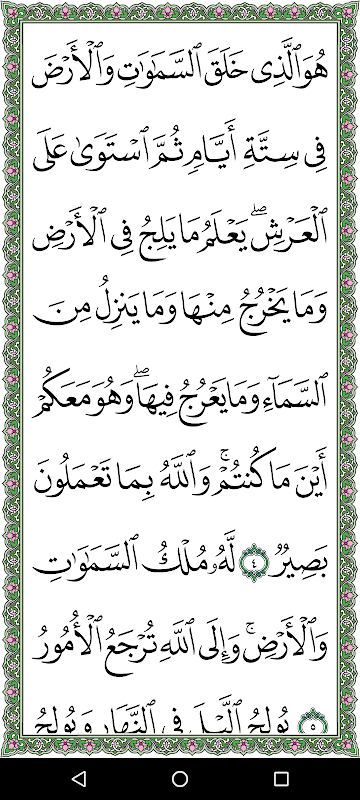 هُوَ ٱلَّذِى خَلَقَ ٱلسَّمَٰوَٰتِ وَٱلْأَرْضَ
فِى سِتَّةِ أَيَّامٍ ثُمَّ ٱسْتَوَىٰ عَلَى
ٱلْعَرْشِ ۖ يَعْلَمُ مَا يَلِجُ فِى ٱلْأَرْضِ
وَمَا يَخْرُجُ مِنْهَا وَمَا يَنزِلُ مِنَ
ٱلسَّمَآءِ وَمَا يَعْرُجُ فِيهَا ۖ وَهُوَ مَعَكُمْ
أَيْنَ مَا كُنتُمْ ۚ وَٱللَّهُ بِمَا تَعْمَلُونَ
بَصِيرٌ ٤ لَّهُۥ مُلْكُ ٱلسَّمَٰوَٰتِ
وَٱلْأَرْضِ ۚ وَإِلَى ٱللَّهِ تُرْجَعُ ٱلْأُمُورُ
٥ يُولِجُ ٱلَّيْلَ فِى ٱلنَّهَارِ وَيُولِجُ